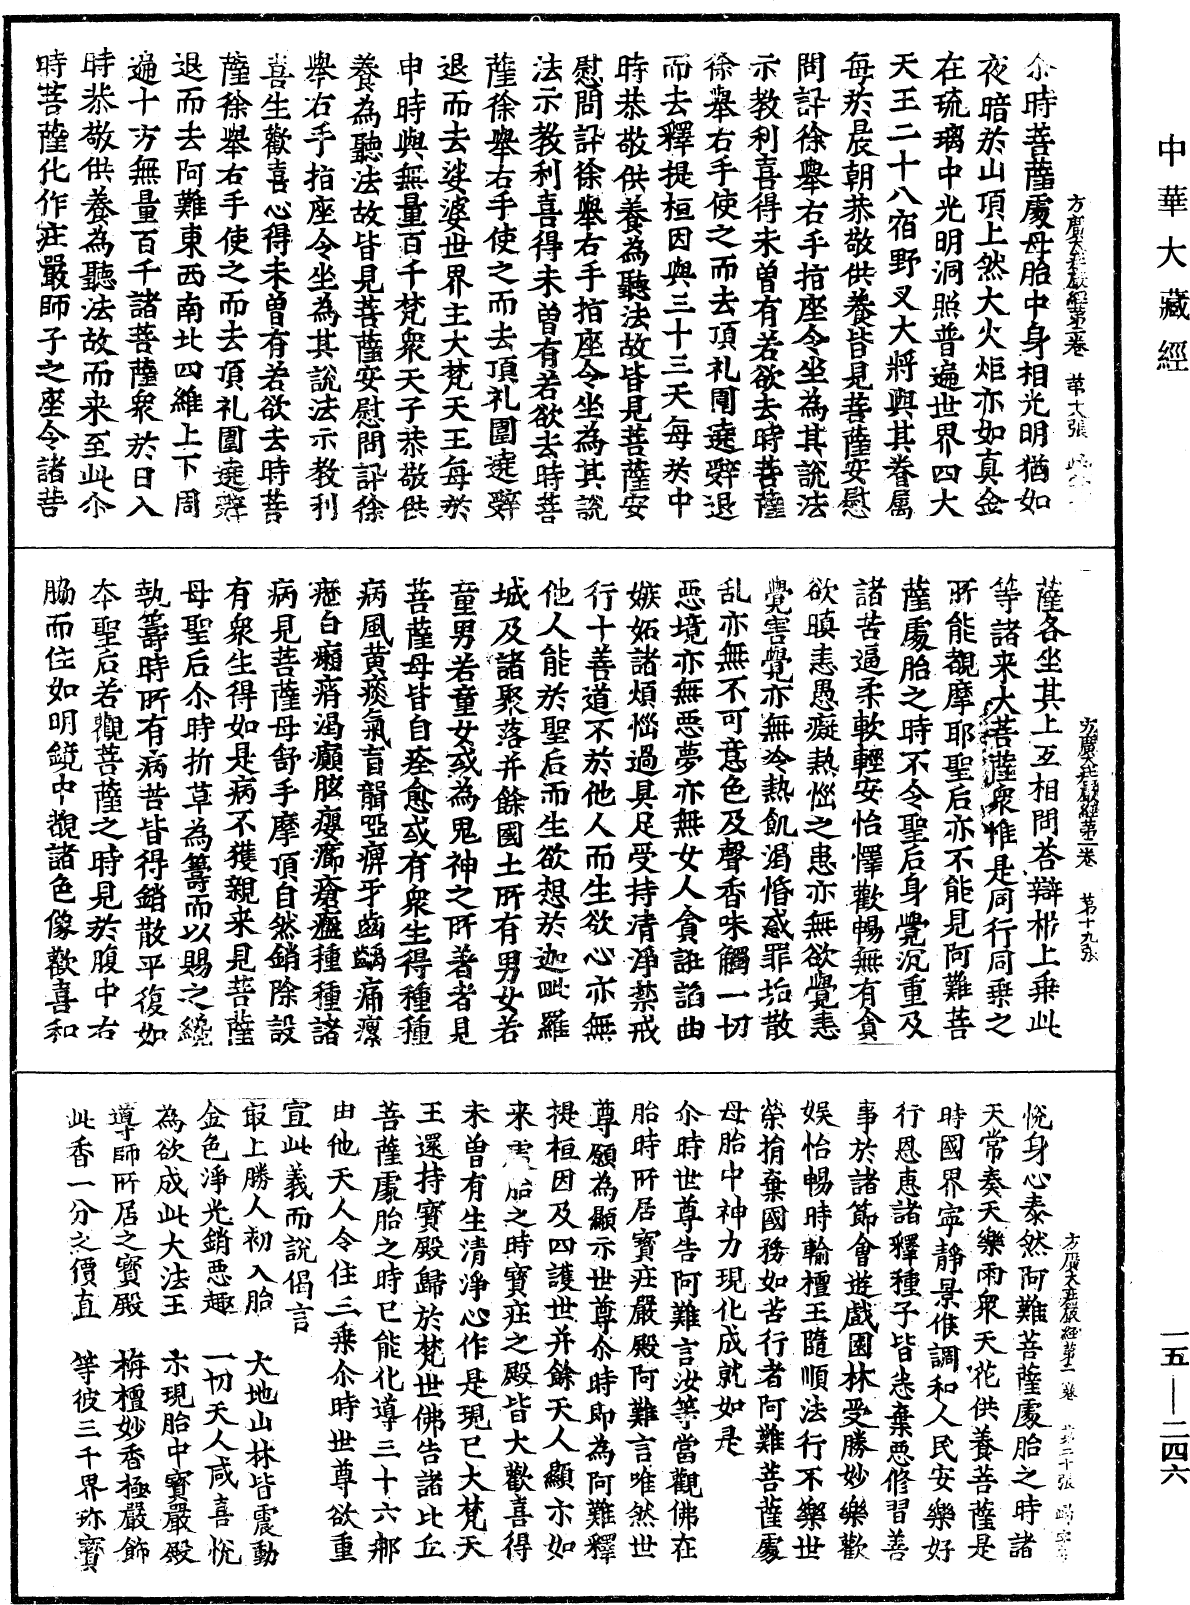 中華大藏經
方廣大莊嚴經第二卷 第十八張
尒時菩薩處母胎中身相光明猶如
夜暗於山頂上然大火炬亦如真金
在琉璃中光明洞照普遍世界四大
天王二十八宿野叉大將與其眷屬
每於晨朝恭敬供養皆見菩薩安慰
問訊徐舉右手指座令坐為其說法
示教利喜得未曽有若欲去時菩薩
徐舉右手使之而去頂礼圍遶辭退
而去釋提桓因與三十三天每於中
時恭敬供養為聽法故皆見菩薩安
慰問訊徐舉右手指座令坐為其說
法示教利喜得未曽有若欲去時菩
薩徐舉右手使之而去頂礼圍遶辭
退而去娑婆世界主大梵天王每於
申時與無量百千梵衆天子恭敬供
養為聽法故皆見菩薩安慰問訊徐
舉右手指座令坐為其說法示教利
喜生歡喜心得未曽有若欲去時菩
薩徐舉右手使之而去頂礼圍遶辭
退而去阿難東西南北四維上下周
遍十方無量百千諸菩薩衆於日入
時恭敬供養為聽法故而来至此尒
時菩薩化作莊嚴師子之座令諸菩
方廣大莊嚴經第二卷 第十九張
薩各坐其上互相問荅辯析上乗此
等諸来大菩薩衆惟是同行同乗之
所能覩摩耶聖后亦不能見阿難菩
薩處胎之時不令聖后身覺沉重及
諸苦逼柔軟輕安怡懌歡暢無有貪
欲瞋恚愚癡熱惱之患亦無欲覺恚
覺害覺亦無冷熱飢渴惛惑罪垢散
乱亦無不可意色及聲香味觸一切
惡境亦無惡夢亦無女人貪誑諂曲
嫉妬諸煩惱過具足受持清淨禁戒
行十善道不於他人而生欲心亦無
他人能於聖后而生欲想於迦毗羅
城及諸聚落并餘國土所有男女若
童男若童女或為鬼神之所著者見
菩薩母皆自痊愈或有衆生得種種
病風黄痰氣盲聾瘂痹牙齒齲痛瘰
癧白癩痟渴癲眩瘿瘤瘡癰種種諸
病見菩薩母舒手摩頂自然銷除設
有衆生得如是病不獲親来見菩薩
母聖后尒時折草為籌而以賜之纔
執籌時所有病苦皆得銷散平復如
本聖后若觀菩薩之時見於腹中右
脇而住如明鏡中覩諸色像歡喜和
方廣大莊嚴經第二卷 第二十張
悅身心泰然阿難菩薩處胎之時諸
天常奏天樂雨衆天花供養菩薩是
時國界寜靜景候調和人民安樂好
行恩惠諸釋種子皆悉棄惡修習善
事於諸節會遊戲園林受勝妙樂歡
娛怡暢時輸檀王隨順法行不樂世
榮捐棄國務如苦行者阿難菩薩處
母胎中神力現化成就如是
尒時世尊告阿難言汝等當觀佛在
胎時所居寶莊嚴殿阿難言唯然世
尊願為顯示世尊尒時即為阿難釋
提桓因及四護世并餘天人顯示如
来處胎之時寶莊之殿皆大歡喜得
未曽有生清淨心作是現已大梵天
王還持寶殿歸於梵世佛告諸比丘
菩薩處胎之時已能化導三十六那
由他天人令住三乗尒時世尊欲重
宣此義而說偈言
最上勝人初入胎 大地山林皆震動
金色淨光銷惡趣 一切天人咸喜悅
為欲成此大法王 示現胎中寶嚴殿
導師所居之寶殿 栴檀妙香極嚴飾
此香一分之價直 等彼三千界珎寶
一五—二四六